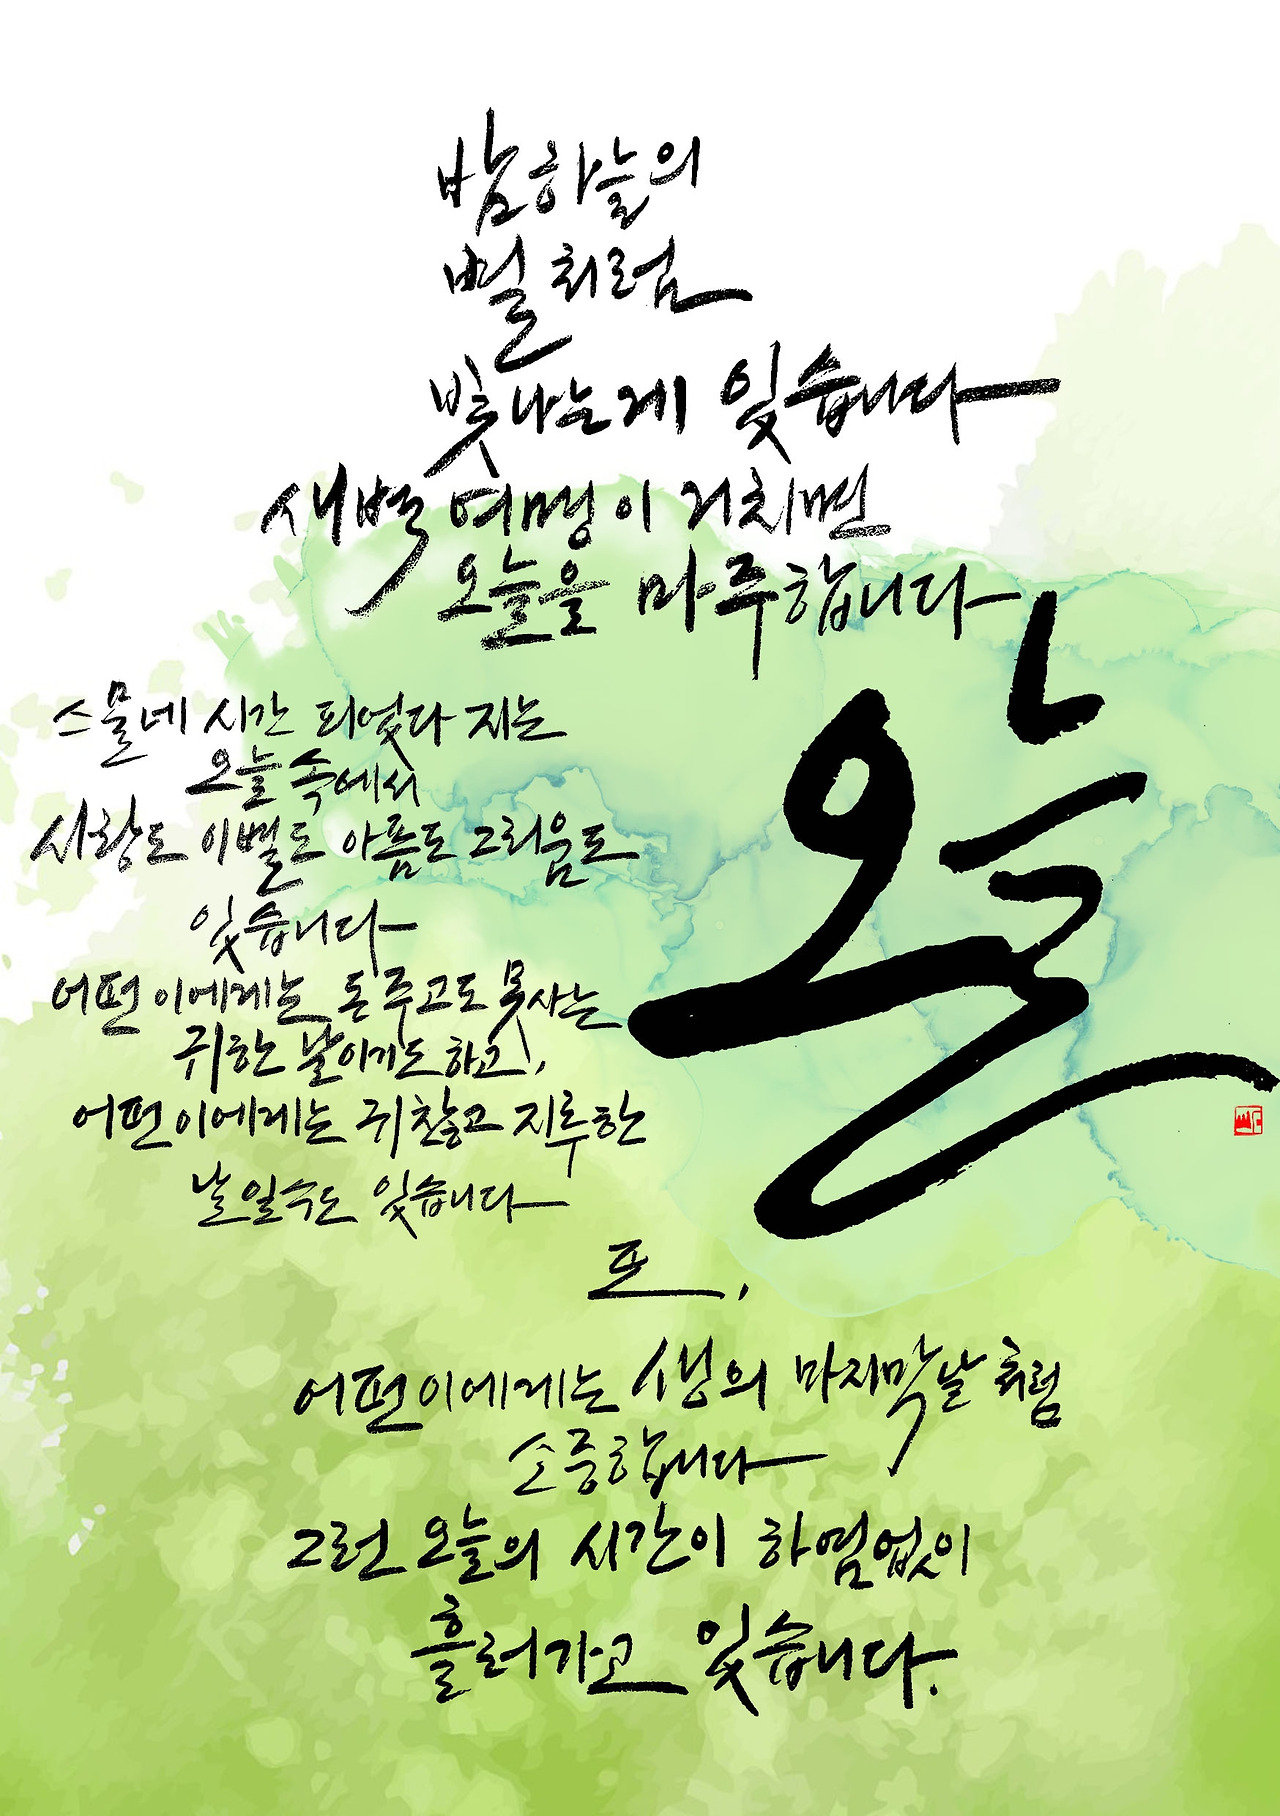 밤하늘의
별처럼
빛나는게 있습니다
새벽 여명이 걷치면
오늘을 마주합니다
오늘
스물네 시간 피었다 지는
오늘 속에서
사랑도 이별도 아픔도 그리움도
있습니다
어떤 이에게는 돈 주고도 못사는
귀한 날이기도 하고,
어떤이에게는 귀찮고 지루한
날일수도 있습니다
또,
어떤이에게는 생의 마지막날처럼
소중합니다
그런 오늘의 시간이 하염없이
흘러가고 있습니다.